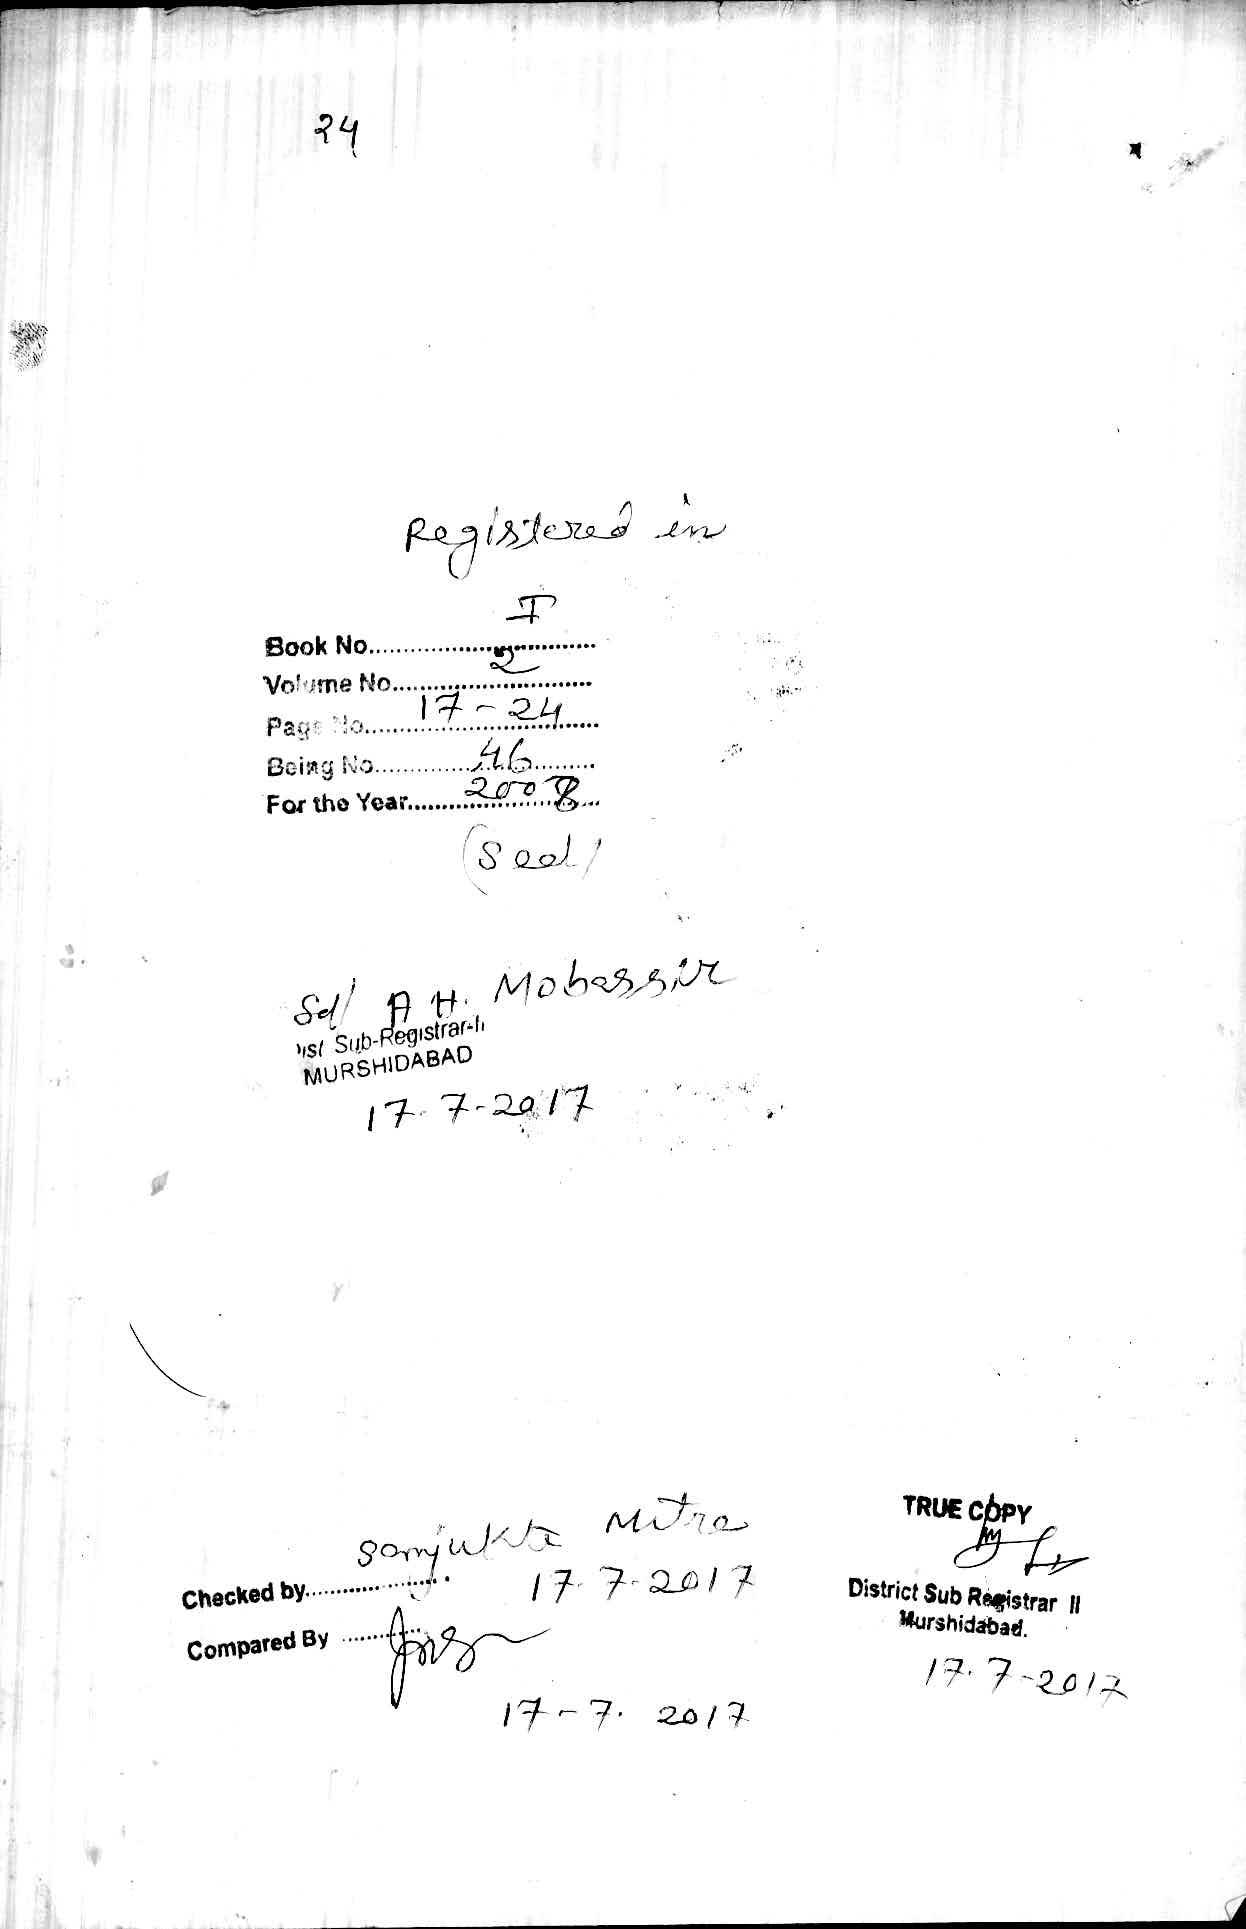 24
Registered in
Book No.................. I
Volume No.................. 2
Page No.................. 17 - 24
Being No.................. 46
For the Year.................. 2008
(Seal)
Sd/ A H. Mobassir
Dist Sub-Registrar-II
MURSHIDABAD
17.7-2017
Checked by.................. Sanjukta Mitra
17.7.2017
Compared By ..................
17-7. 2017
TRUE COPY
District Sub Registrar II
Murshidabad.
17.7-2017